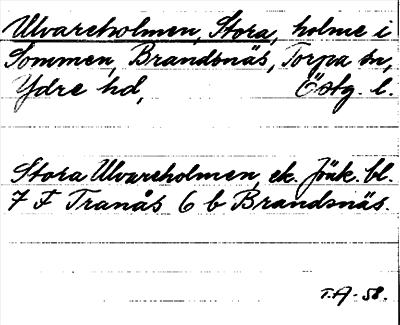 Ulvareholmen, Stora, holme i
Sommen, Brandsnäs, Torpa sn,
Ydre hd, Östg. l.
Stora Ulvareholmen, ek. Jönk. bl.
7 F Tranås 6 b Brandsnäs.
T.A-58.